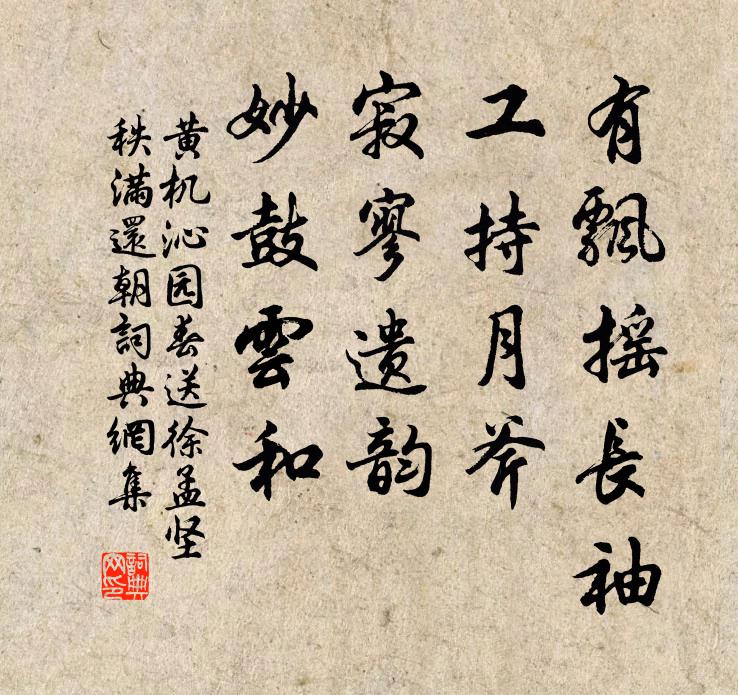 有飄摇長袖
工持月斧
寂寥遗韵
妙鼓雲和
黄机沁园春送徐孟坚
秩满還朝詞典網集
詞典网印